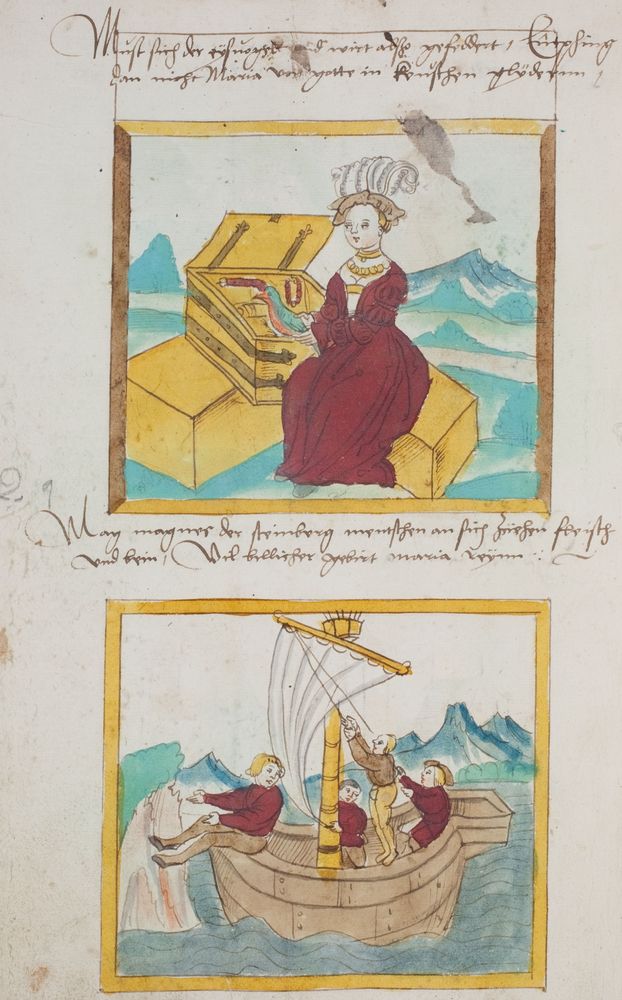 Must sich der eyßuogel und wirt adho gefeddert, Emphing
dan nicht Maria von gotte in keuschen glydernn,
Mag magnes der steinberg mentschen an sich ziehen fleisch
und bein, Vil billicher gebirt maria reynn